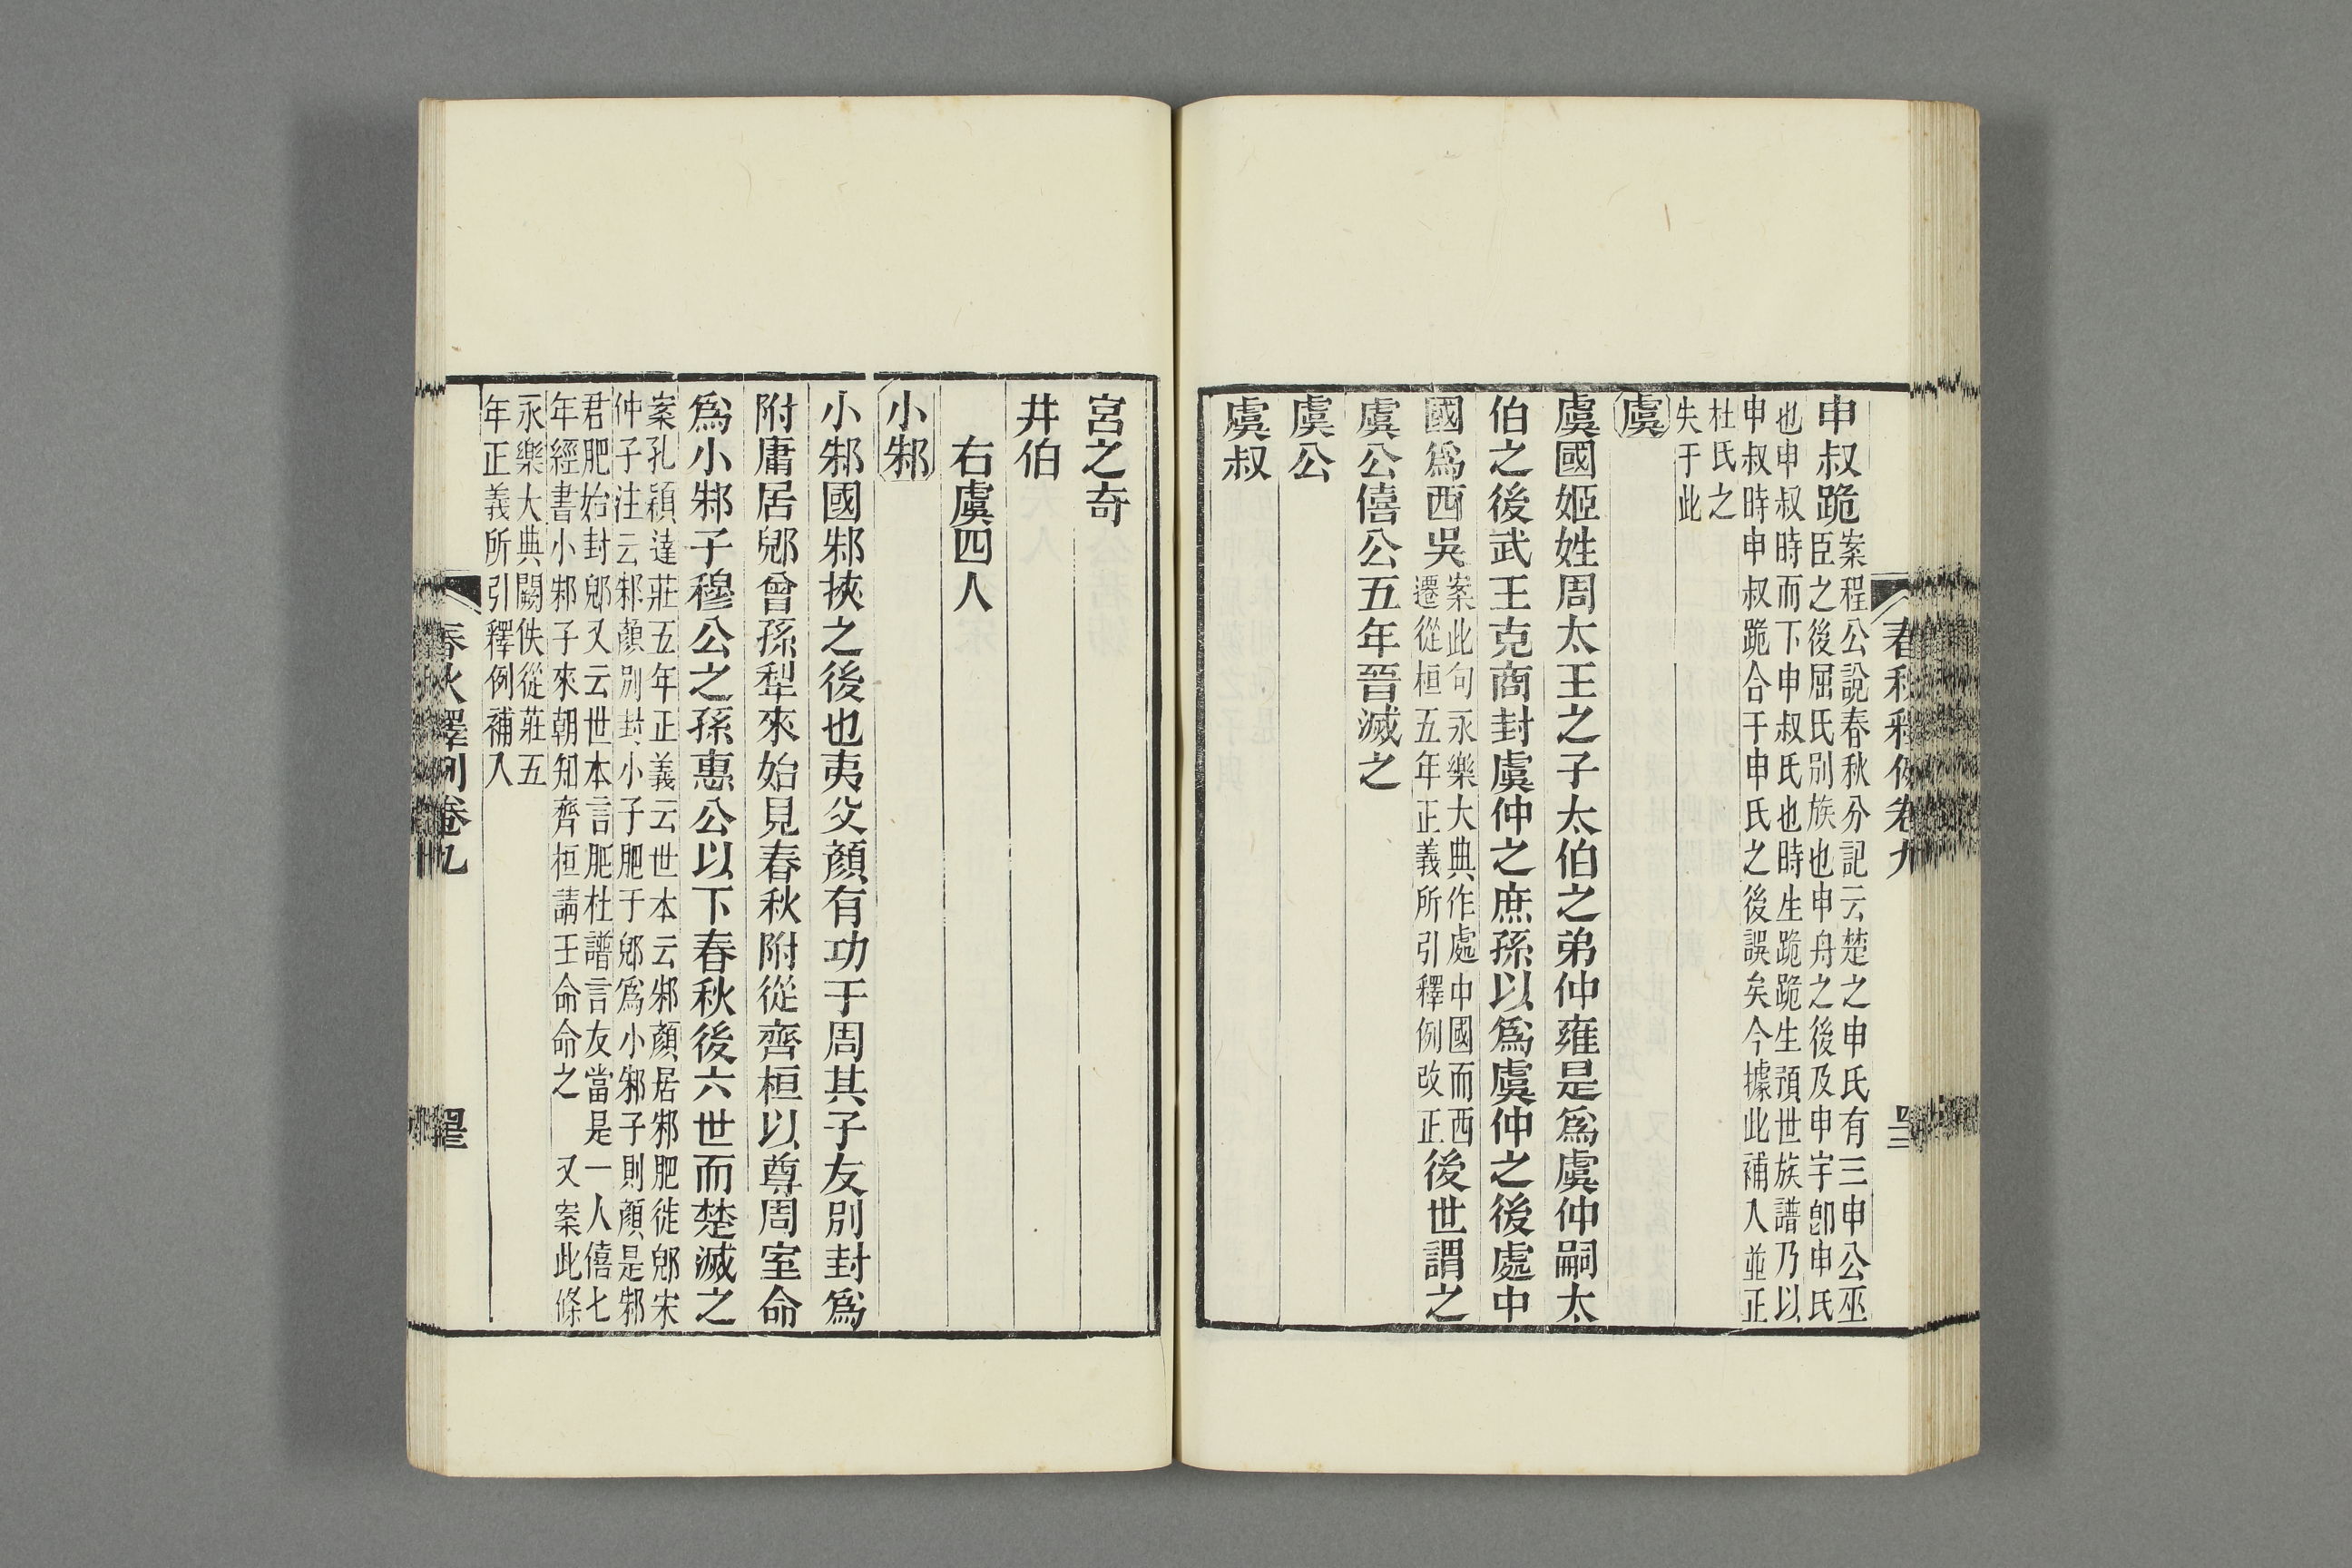 申叔跪案程公說春秋分記云楚之申氏有三申公巫
臣之後屈氏別族也申舟之後及申宇卽申氏
也申叔時而下申叔氏也時生跪跪生預世族譜乃以
申叔時申叔跪合于申氏之後誤矣今據此補入並正
杜氏之
失于此
虞
虞國姬姓周太王之子太伯之弟仲雍是爲虞仲嗣太
伯之後武王克商封虞仲之庶孫以爲虞仲之後處中
國爲西吳案此句永樂大典作處中國而西
遷從桓五年正義所引釋例改正後世謂之
虞公僖公五年晉滅之
虞公
虞叔
春秋釋例卷九
宮之奇
井伯
右虞四人
小邾
小邾國邾挾之後也夷父顏有功于周其子友別封爲
附庸居郳曾孫犁來始見春秋附從齊桓以尊周室命
爲小邾子穆公之孫惠公以下春秋後六世而楚滅之
案孔穎達莊五年正義云世本云邾顏居邾肥徙郳宋
仲子注云邾顏別封小子肥于郳爲小邾子則顏是邾
君肥始封郳又云世本言肥杜譜言友當是一人僖七
年經書小邾子來朝知齊桓請王命命之 又案此條
永樂大典闕佚從莊五
年正義所引釋例補入
春秋釋例卷九